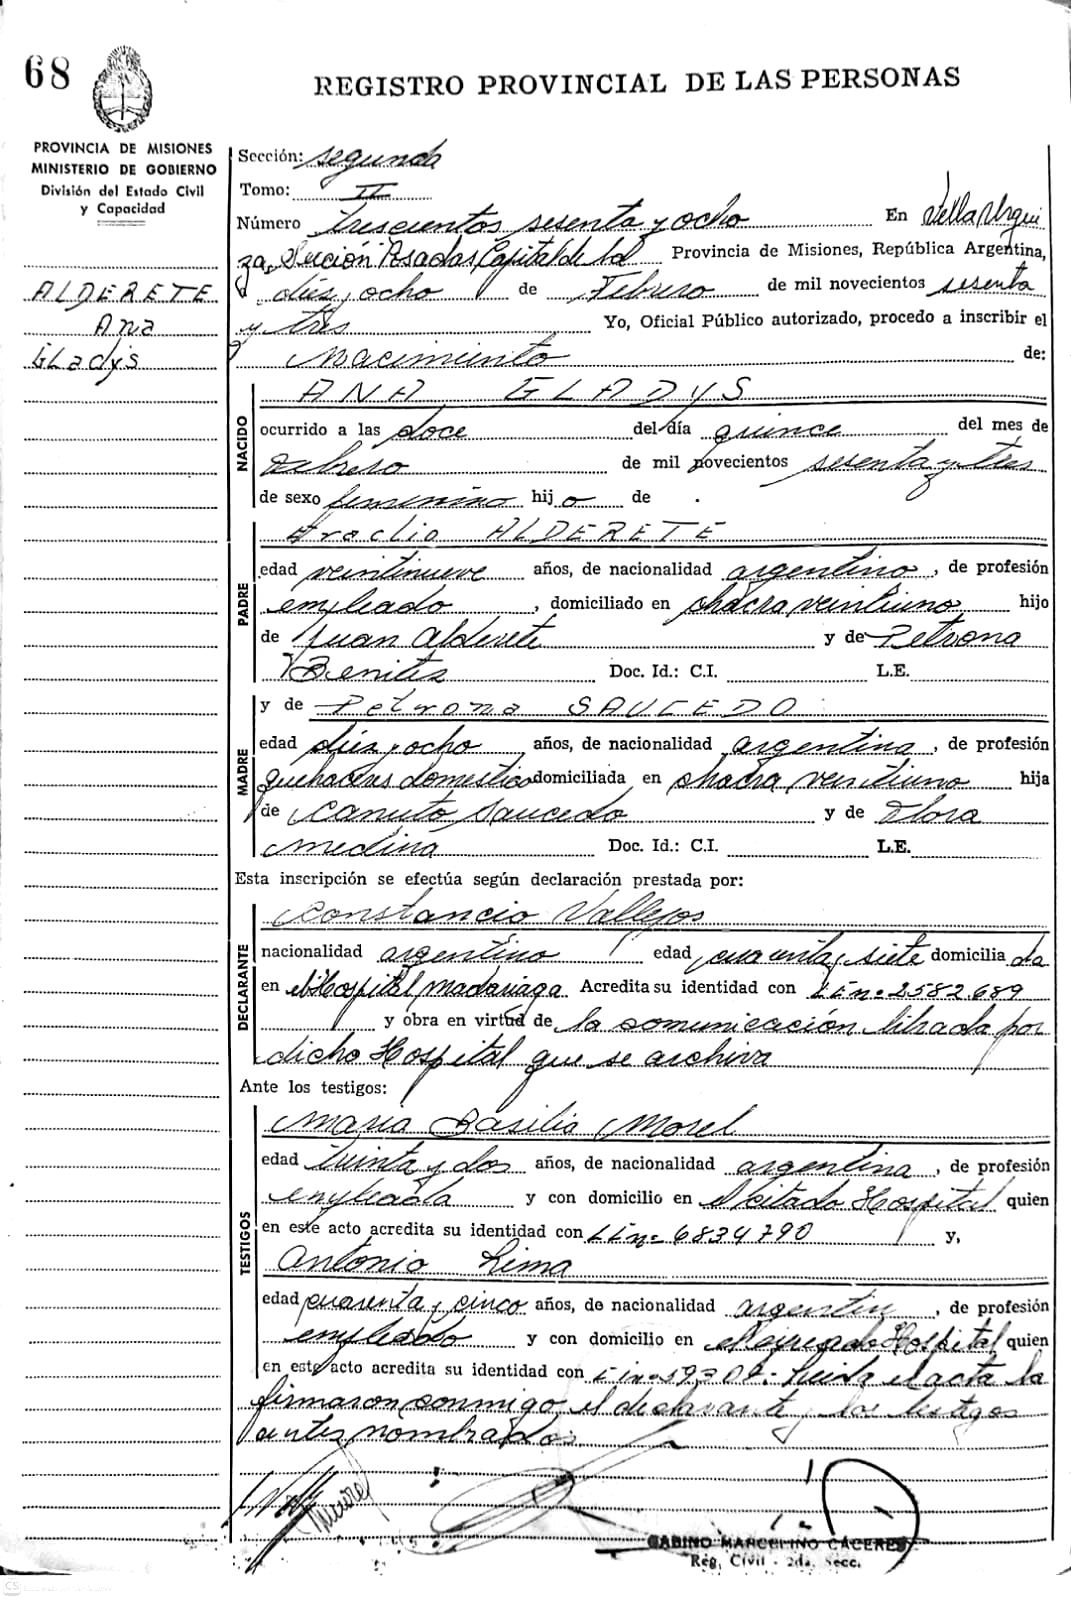 68
REGISTRO PROVINCIAL DE LAS PERSONAS
PROVINCIA DE MISIONES
MINISTERIO DE GOBIERNO
División del Estado Civil
y Capacidad
ALDERETE
Ana
GLadys
Sección: segunda
Tomo: II
Número trescientos sesenta y ocho En Villa Urqui
za, Sección Posadas Capital de la Provincia de Misiones, República Argentina,
a diez y ocho de Febrero de mil novecientos sesenta
y tres Yo, Oficial Público autorizado, procedo a inscribir el
Nacimiento de:
NACIDO
ANA GLADYS
ocurrido a las doce del día quince del mes de
Febrero de mil novecientos sesenta y tres
de sexo femenino hij o de
PADRE
Eraclio ALDERETE
edad veintinueve años, de nacionalidad argentino, de profesión
empleado, domiciliado en chacra veintiuno hijo
de Juan Alderete y de Petrona
Benitez Doc. Id.: C.I. L.E.
MADRE
y de Petrona SAUCEDO
edad diez y ocho años, de nacionalidad argentina, de profesión
quehaceres domestico domiciliada en chacra veintiuno hija
de Canuto Saucedo y de Flora
Medina Doc. Id.: C.I. L.E.
Esta inscripción se efectúa según declaración prestada por:
DECLARANTE
Constancio Vallejos
nacionalidad argentino edad cuarenta y siete domicilia da
en el Hospital Madariaga Acredita su identidad con LEnº 2582.689
y obra en virtud de la comunicación librada por
dicho Hospital que se archiva
Ante los testigos:
TESTIGOS
Maria Basilia Morel
edad treinta y dos años, de nacionalidad argentina, de profesión
empleada y con domicilio en el citado Hospital quien
en este acto acredita su identidad con LEnº 6834790 y,
Antonio Lima
edad cuarenta y cinco años, de nacionalidad argentin, de profesión
empleado y con domicilio en Hospital quien
en este acto acredita su identidad con Leida el acta la
firmaron conmigo, el declarante y los testigos
antes nombrados.
GABINO MARCELINO CÁCERES
Reg. Civil - 2da. Secc.
CS